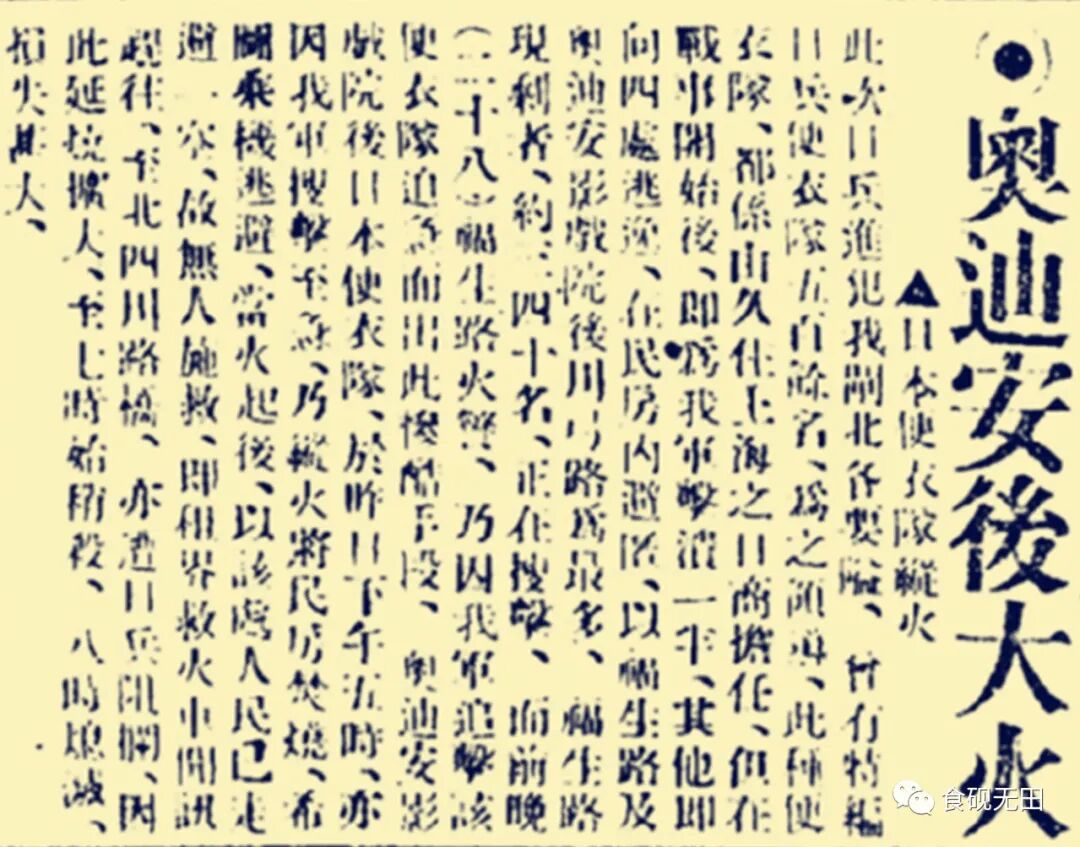 奧迪安後大火
▲日本便衣隊縱火
此次日兵進犯我閘北各要隘、曾有特編
日兵便衣隊五百餘名、爲之前導、此種便
衣隊、都係由久住上海之日商擔任、但在
戰事開始後、即爲我軍擊潰一半、其他即
向四處逃逸、在民房內避匿、以福生路及
奧迪安影戲院後川弓路爲最多、福生路
現剩者、約三四十名、正在搜擊、而前晚
(二十八)福生路火警、乃因我軍追擊該
便衣隊迫急而出此慘酷手段、奧迪安影
戲院後日本便衣隊、於昨日下午五時、亦
因我軍搜擊至急、乃縱火將民房焚燒、希
圖乘機逃避、當火起後、以該處人民已走
避一空、故無人施救、即租界救火車聞訊
趕往、至北四川路橋、亦遭日兵阻攔、因
此延燒擴大、至七時始稍殺、八時熄滅、
損失甚大、
食砚无田